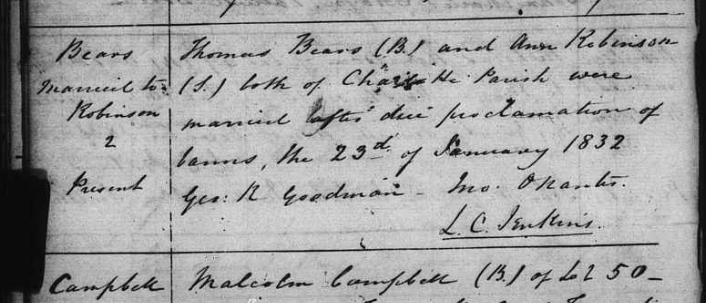 Bears
Married to
Robinson
2
Present
Thomas Bears (B.) and Ann Robinson
(S.) both of Charlotte Parish were
married after due proclamation of
banns, the 23rd of January 1832
Geo: R Goodman - Jno.
L. C. Jenkins.
Campbell
Malcolm Campbell (B.) of Lt 50-